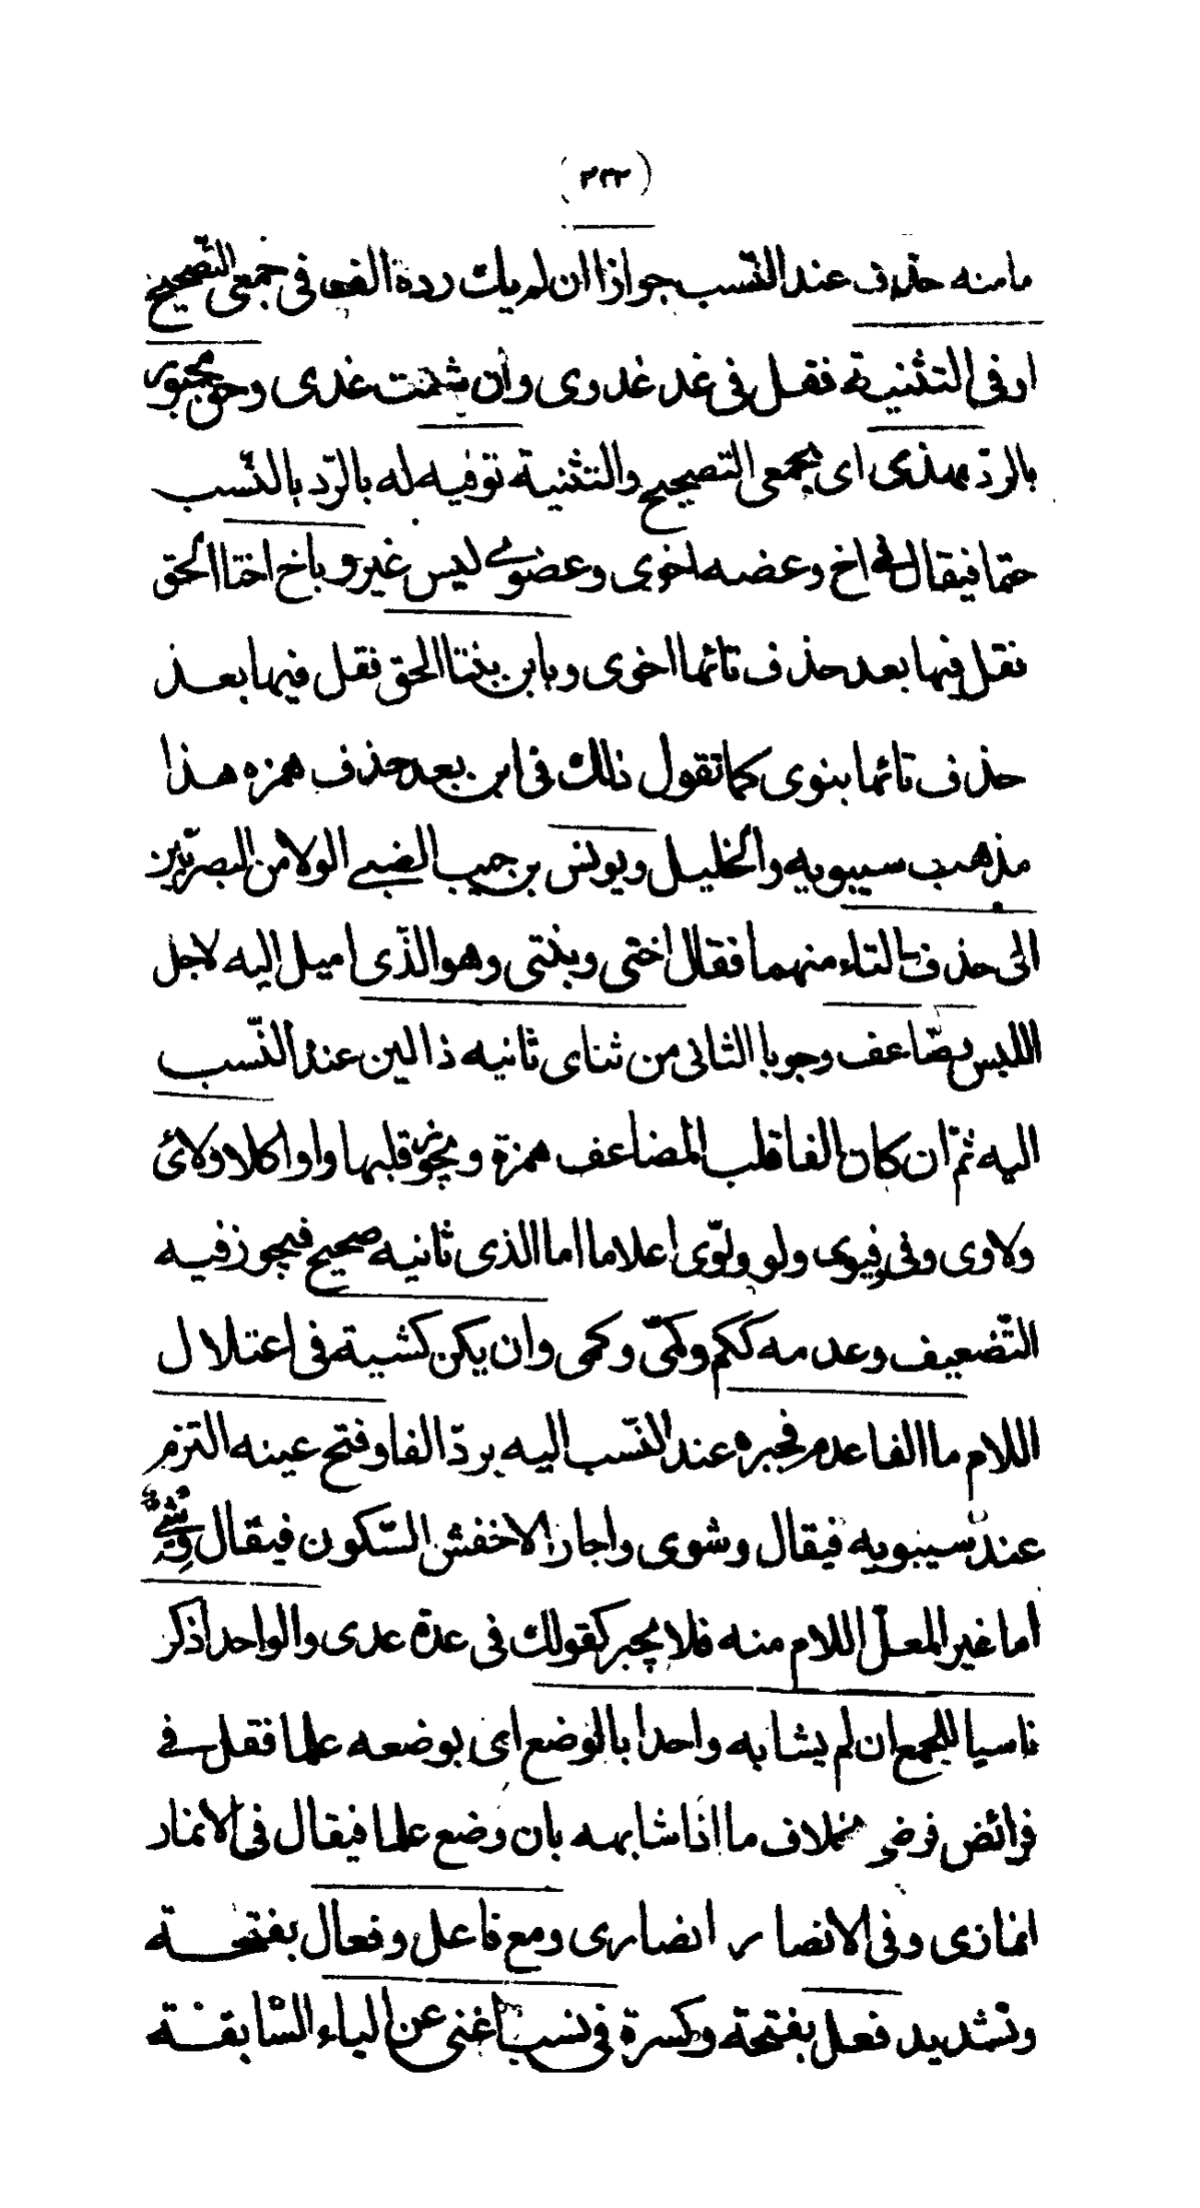 (٣٣٢)
ما منه حذف عند النّسب جوازا ان لم يك رده الف في جمعى التّصحيح
او فى التثنية فقل فى غد غدوى وان شئت غدى وحق مجبور
بالردّ بهذى اى بجمعى التصحيح والتثنية توفيه له بالرّد بالنّسب
حتما فيقال فى اخ وعضه اخوى وعضوى ليس غير وباخ اختا الحق
نقل فيها بعد حذف تائها اخوى وبابن بنتا الحق فقل فيها بعـد
حذف تائها بنوى كما تقول ذلك فى ابن بعد حذف همزه هـذا
مذهب سيبويه والخليل ويونس بن حبيب الضبى الولا من البصريّين
الى حذف التاء منهما فقال اختى وبنتى وهو الذّى اميل اليه لاجل
اللبس وضّاعف وجوبا الثانى من ثناى ثانيه ذا لين عند النّسب
اليه ثمّ ان كان الفا قلب المضاعف همزة ويجوز قلبها واوا كلا ولائ
ولاوى وفى فيوى ولو ولوّى اعلاما اما الذى ثانيه صحيح فيجوز فيه
التّضعيف وعدمه ككم وكمّى وكمى وان يكن كشية فى اعتلال
اللام ما الفا عدم فجبره عند النّسب اليه بردّ الفا وفتح عينه التزم
عند سيبويه فيقال وشوى واجاز الاخفش السّكون فيقال وشيى
اما غير المعلّ اللام منه فلا يجبر كقولك فى عدة عدى والواحد اذكر
ناسبا للجمع ان لم يشابه واحدا بالوضع اى بوضعه علما فقل فى
فرائض فرضى بخلاف ما اذا شابهه بان وضع علما فيقال فى الانمار
انمارى وفى الانصار انصارى ومع فاعل وفعال بفتحـة
وتشديد فعل بفتحة وكسرة فى نسب اغنى عن الياء السّابقـة